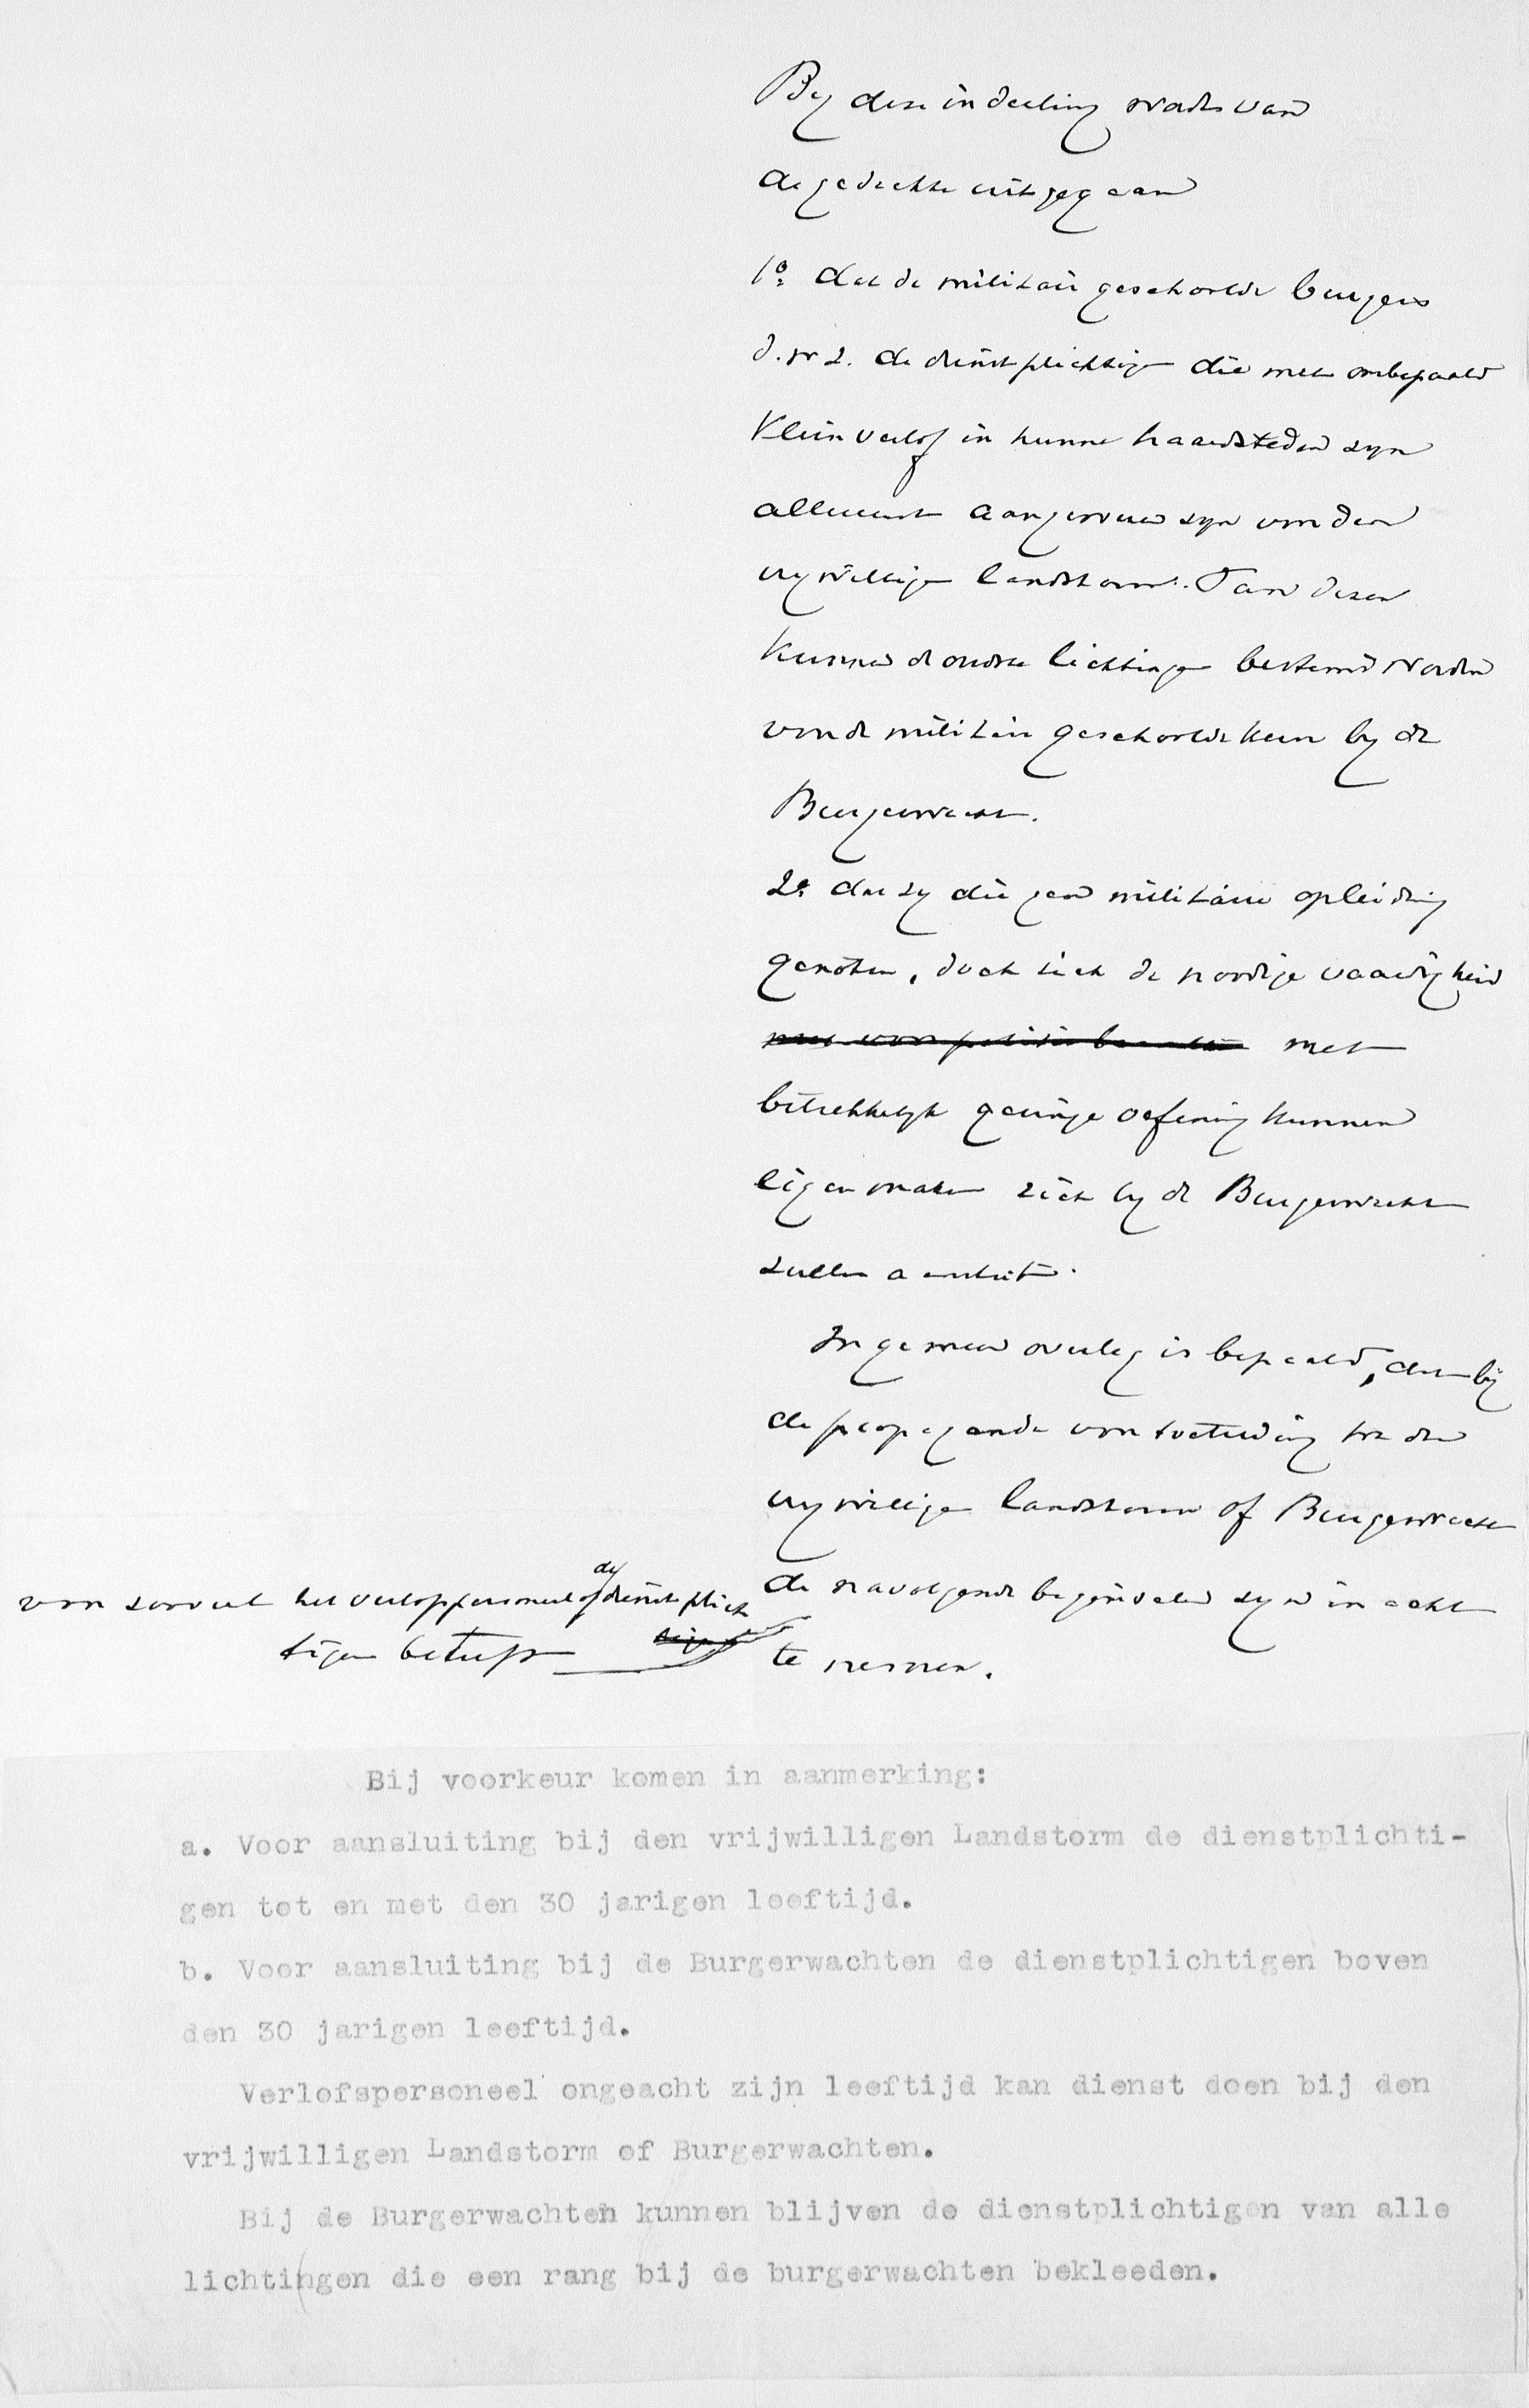 By deze indeeling wordt van
de gedachte uitgegaan
1º dat de militair geschoolde burgers
d.w.z. de dienstplichtigen die met onbepaald
klein verlof in hunne haardsteden zyn
allereerst aangewezen zyn voor den
vrywilligen landstorm. Van dezen
kunnen de oudste lichtingen bestemd worden
voor de militair geschoolde kern by de
Burgerwacht.
2º dat zy die geen militaire opleiding
genoten, doch zich de noodige vaardigheid
met
betrekkelyk geringe oefening kunnen
eigen maken zich by de Burgerwacht
zullen aansluiten.
In gemeen overleg is bepaald, dat bij
de propaganda voor toetreding tot den
vrywilligen landstorm of Burgerwacht
voor zooveel het verlofspersoneel of de dienstplich
tigen betreft
de navolgende beginselen zyn in acht
te nemen.
Bij voorkeur komen in aanmerking:
a. Voor aansluiting bij den vrijwilligen Landstorm de dienstplichti-
gen tot en met den 30 jarigen leeftijd.
b. Voor aansluiting bij de Burgerwachten de dienstplichtigen boven
den 30 jarigen leeftijd.
Verlofspersoneel ongeacht zijn leeftijd kan dienst doen bij den
vrijwilligen Landstorm of Burgerwachten.
Bij de Burgerwachten kunnen blijven de dienstplichtigen van alle
lichtingen die een rang bij de burgerwachten bekleeden.